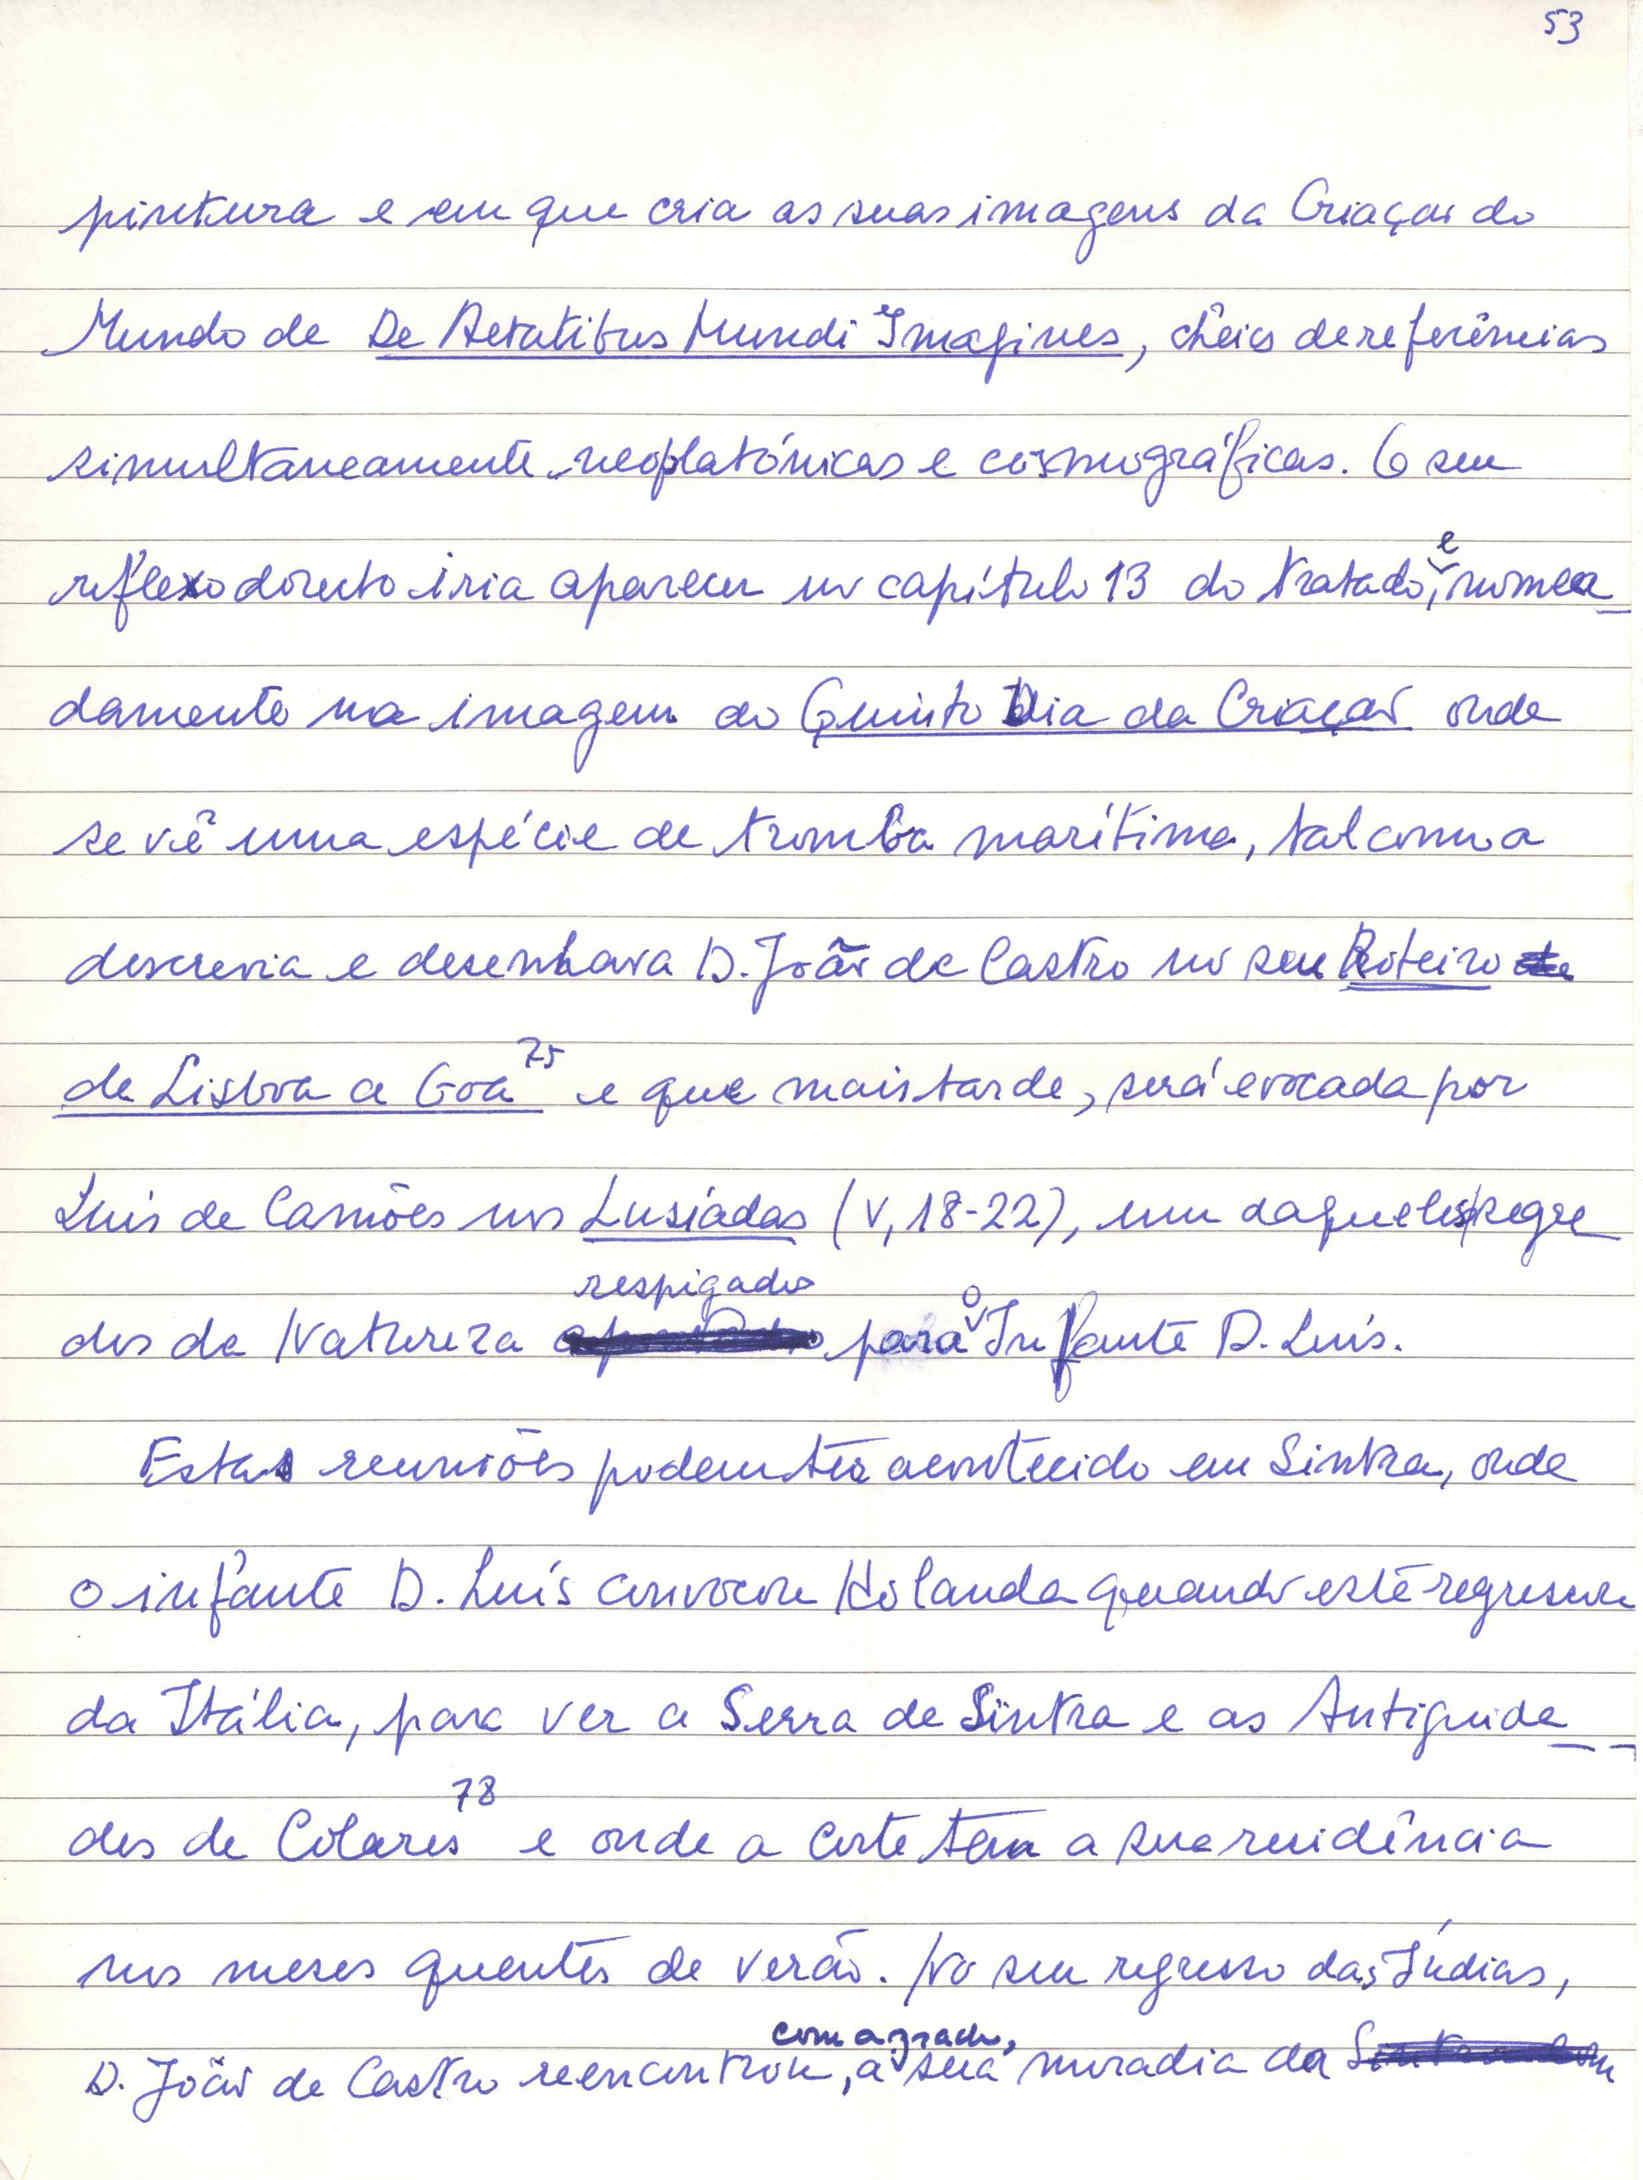 53
pintura e em que cria as suas imagens da Criação do
Mundo de De Aetatibus Mundi Imagines, cheias de referências
simultaneamente neoplatónicas e cosmográficas. O seu
reflexo directo iria aparecer no capítulo 13 do tratado, e nomea-
damente na imagem do Quinto Dia da Criação onde
se vê uma espécie de tromba marítima, tal como a
descrevia e desenhava D. João de Castro no seu Roteiro
de Lisboa a Goa 75 e que mais tarde, será evocada por
Luís de Camões nos Lusíadas (V, 18-22), um daqueles segre
respigado
dos da Natureza para o Infante D. Luís.
Estas reuniões podem ter acontecido em Sintra, onde
o infante D. Luís convocou Holanda quando este regressou
da Itália, para ver a Serra de Sintra e as Antiguida-
des de Colares 78 e onde a corte tem a sua residência
nos meses quentes de verão. No seu regresso das Índias,
com agrado,
D. João de Castro reencontrou, a sua moradia da